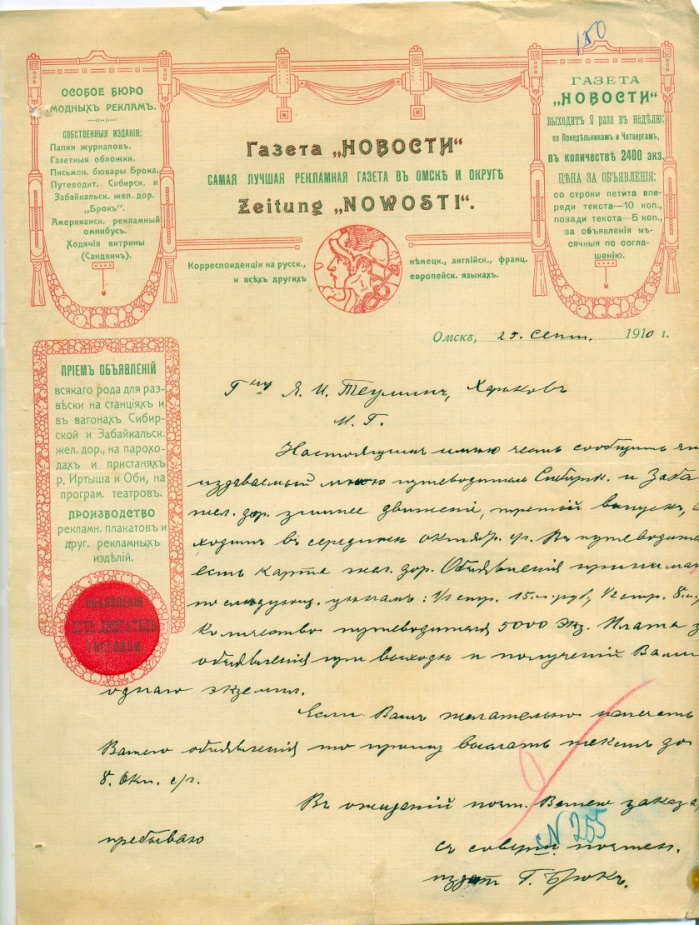 150
ОСОБОЕ БЮРО
МОДНЫХЪ РЕКЛАМЪ.
СОБСТВЕННЫЯ ИЗДАНІЯ:
Папки журналовъ.
Газетныя обложки.
Письмен. бювары Брока.
Путеводит. Сибирск. и
Забайкальск. жел. дор.
„Брокъ".
Американск. рекламный
омнибусъ.
Ходячія витрины
(Сандвичъ).
Газета „НОВОСТИ"
САМАЯ ЛУЧШАЯ РЕКЛАМНАЯ ГАЗЕТА ВЪ ОМСКѢ И ОКРУГѢ
Zeitung „NOWOSTI".
Корреспонденціи на русск.,
и всѣхъ другихъ
нѣмецк., англійск., франц.
европейск. языкахъ.
ГАЗЕТА
„НОВОСТИ"
ВЫХОДИТЪ 2 РАЗА ВЪ НЕДѢЛЮ:
по Понедѣльникамъ и Четвергамъ,
въ количествѣ 2400 экз.
ЦѢНА ЗА ОБЪЯВЛЕНІЯ:
со строки петита впе-
реди текста—10 коп.,
позади текста—5 коп.,
за объявленія мѣ-
сячныя по согла-
шенію.
Омскъ, 25 Сент. 1910 г.
ПРІЕМЪ ОБЪЯВЛЕНІЙ
всякаго рода для раз-
вѣски на станціяхъ и
въ вагонахъ Сибир-
ской и Забайкальск.
жел. дор., на парохо-
дахъ и пристаняхъ
р. Иртыша и Оби, на
програм. театровъ.
ПРОИЗВОДСТВО
рекламн. плакатовъ и
друг. рекламныхъ
издѣлій.
ОБЪЯВЛЕНІЕ
ЕСТЬ ДВИГАТЕЛЬ
ТОРГОВЛИ
Г-ну Я. И. Харьковъ
М. Г.
Настоящимъ имѣю честь сообщить
издаваемый мною путеводитель Сибирк. и Заба
жел. дор. зимнее движеніе, третій выпускъ,
ходитъ въ серединѣ октября с/г. Въ путеводит
есть карта жел. дор. Объявленія принима
по слѣдующ. цѣнамъ: 1/1 стр. 15 руб, 1/2 стр. 8
Количество путеводителя 5000 экз. Плата з
объявленія при выходѣ и полученій Вами
одного экземпл.
Если Вамъ желательно
Вашего объявленія то прошу выслать текстъ до
8. Окт. с/г.
Въ ожиданій почт. Вашего заказа,
пребываю
№ 255
съ соверш. почтен.
издат. Г. Брокъ.